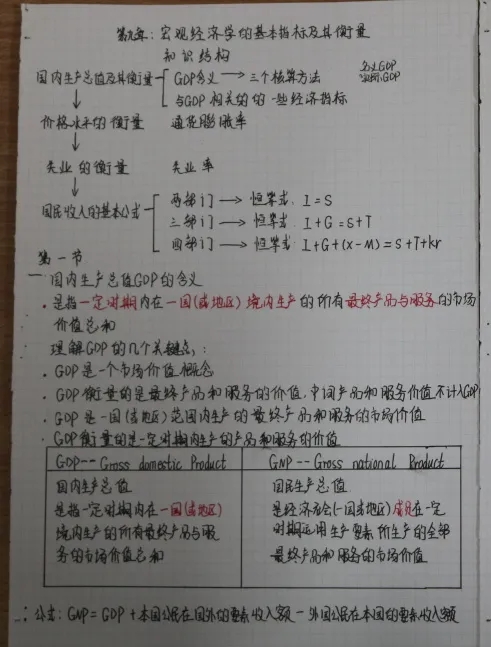 第九章：宏观经济学的基本指标及其衡量
知识结构
国内生产总值及其衡量 GDP含义→三个核算方法 名义GDP
实际GDP
与GDP相关的的一些经济指标
↓
价格水平的衡量 通货膨胀率
↓
失业的衡量 失业率
↓
国民收入的基本公式 两部门→恒等式：I=S
三部门→恒等式：I+G=S+T
四部门→恒等式：I+G+(X-M)=S+T+kr
第一节
一 国内生产总值GDP的含义
·是指一定时期内在一国(或地区)境内生产的所有最终产品与服务的市场
价值总和
理解GDP的几个关键点：
·GDP是一个市场价值概念
·GDP衡量的是最终产品和服务的价值,中间产品和服务价值不计入GDP
·GDP是一国(或地区)范围内生产的最终产品和服务的市场价值
·GDP衡量的是一定时期内生产的产品和服务的价值
GDP--Gross domestic Product
国内生产总值
是指一定时期内在一国(或地区)
境内生产的所有最终产品与服
务的市场价值总和
GNP--Gross national Product
国民生产总值
是经济社会(一国或地区)成员在一定
时期运用生产要素所生产的全部
最终产品和服务的市场价值
公式：GNP=GDP+本国公民在国外的要素收入额-外国公民在本国的要素收入额